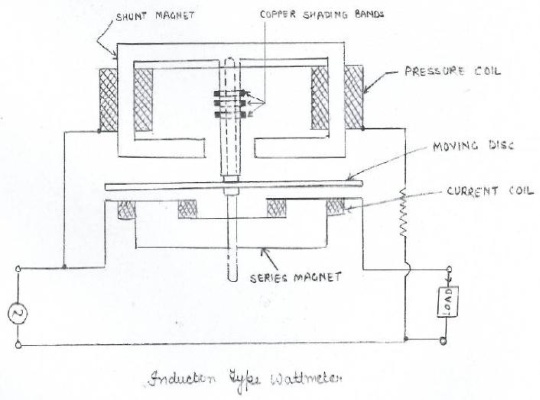 SHUNT MAGNET
COPPER SHADING BANDS
PRESSURE COIL
MOVING DISC
CURRENT COIL
SERIES MAGNET
LOAD
Induction Type Wattmeter